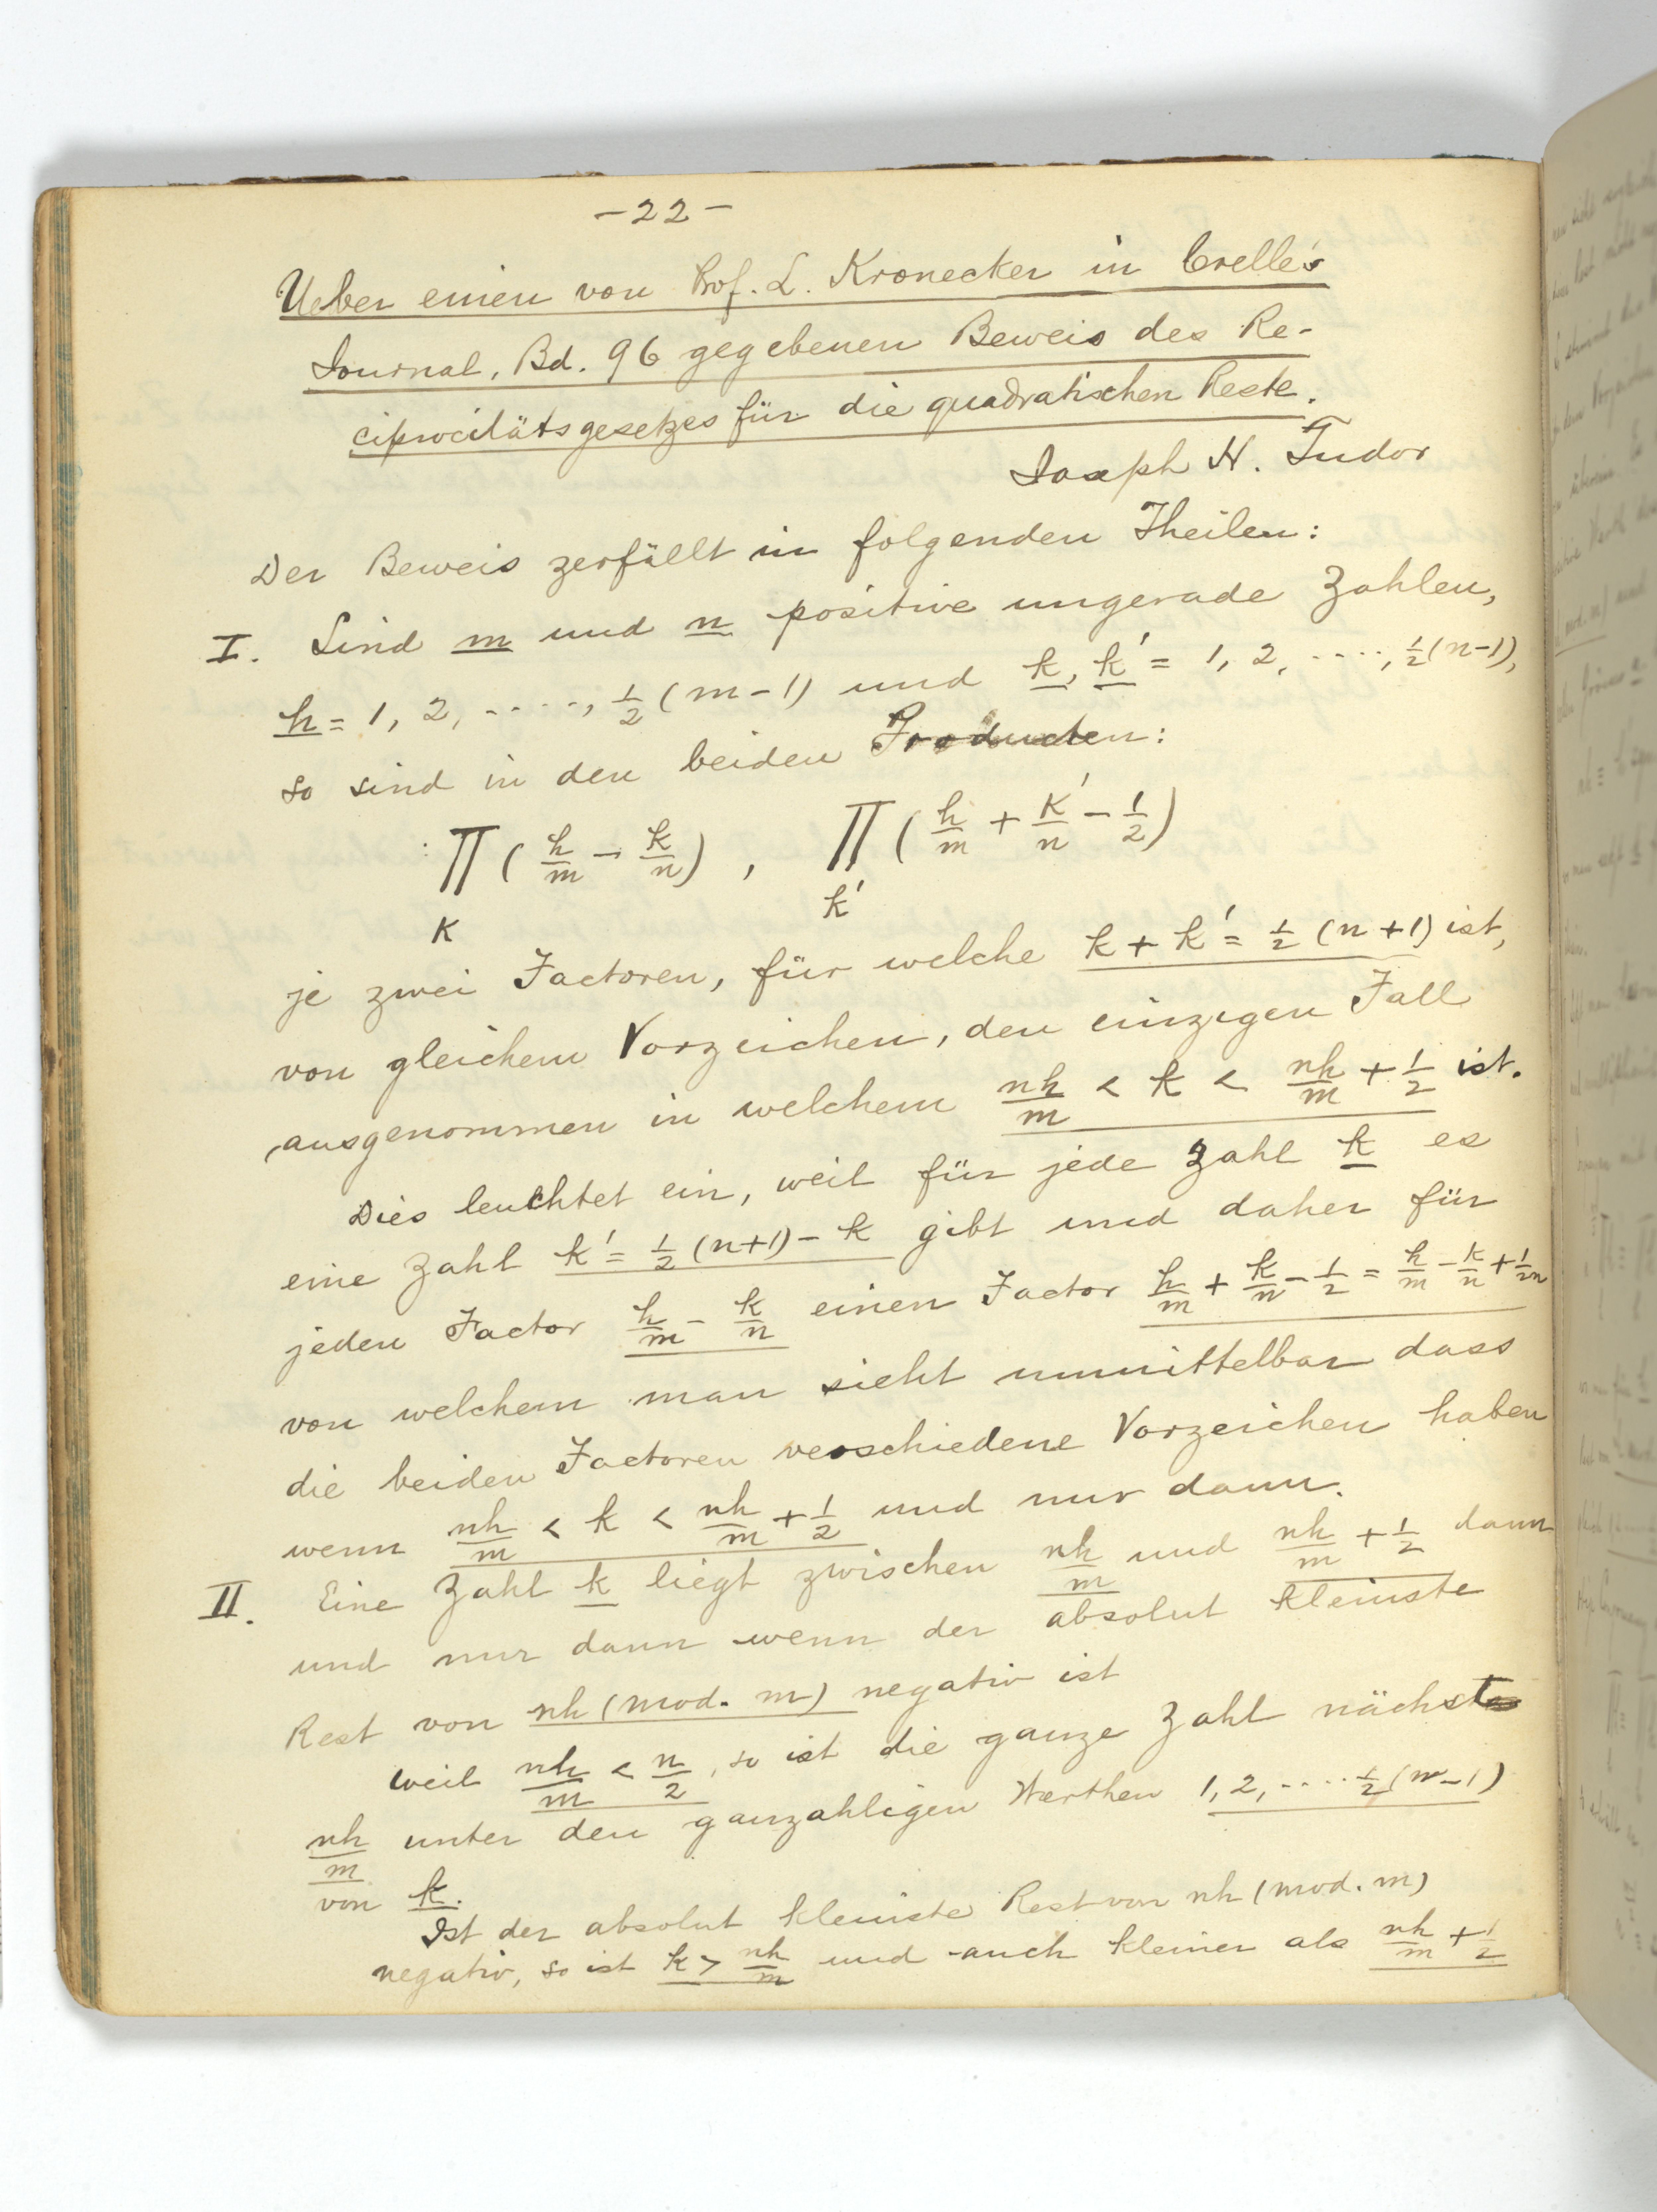 -22-
Ueber einen von Prof. L. Kronecker in Crelle's
Journal, Bd. 96 gegebenen Beweis des Re-
ciprocitätsgesetzes für die quadratischen Reste.
Joseph H. Tudor
Der Beweis zerfällt in folgenden Theilen:
I. Sind m und n positive ungerade Zahlen,
h = 1, 2, ...., ½(m-1) und k, k' = 1, 2, ...., ½(n-1),
so sind in den beiden Producten:
∏ₖ (h/m - k/n) , ∏ₖ' (h/m + k'/n - 1/2)
je zwei Factoren, für welche k + k' = ½(n+1) ist,
von gleichem Vorzeichen, den einzigen Fall
ausgenommen in welchem nh/m < k < nh/m + 1/2 ist.
Dies leuchtet ein, weil für jede Zahl k es
eine Zahl k' = ½(n+1) - k gibt und daher für
jeden Factor h/m - k/n einen Factor h/m + k/n - 1/2 = h/m - k/n + 1/2n
von welchem man sieht unmittelbar dass
die beiden Factoren verschiedene Vorzeichen haben
wenn nh/m < k < nh/m + 1/2 und nur dann.
II. Eine Zahl k liegt zwischen nh/m und nh/m + 1/2 dann
und nur dann wenn der absolut kleinste
Rest von nh (mod. m) negativ ist
Weil nh/m < n/2, so ist die ganze Zahl nächst
nh/m unter den ganzahligen Werthen 1, 2, .... ½(n-1)
von k.
Ist der absolut kleinste Rest von nh (mod. m)
negativ, so ist k > nh/m und auch kleiner als nh/m + 1/2